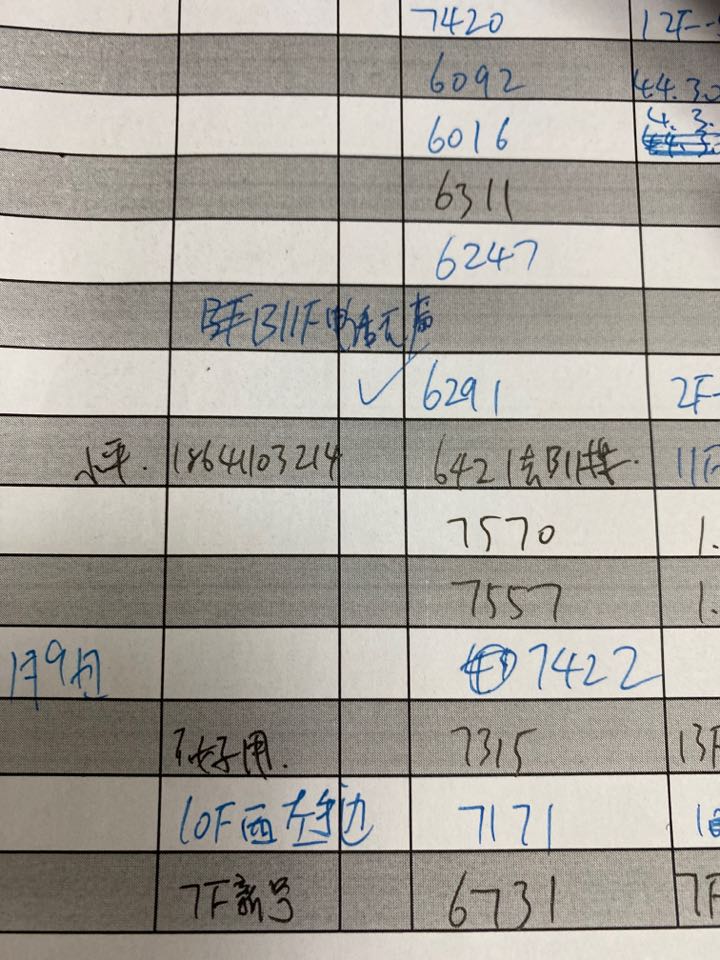 7420 12F-
6092 44.30
6016 4.3.
6311
6247
B11F电话无声
6291 2F-
小平. 18641103214 6421去B11楼. 11F
7570 1.
7557 1.
1月9日 7422
不好用. 7315 13F
10F西左手边 7171 1
7F新号 6731 7F